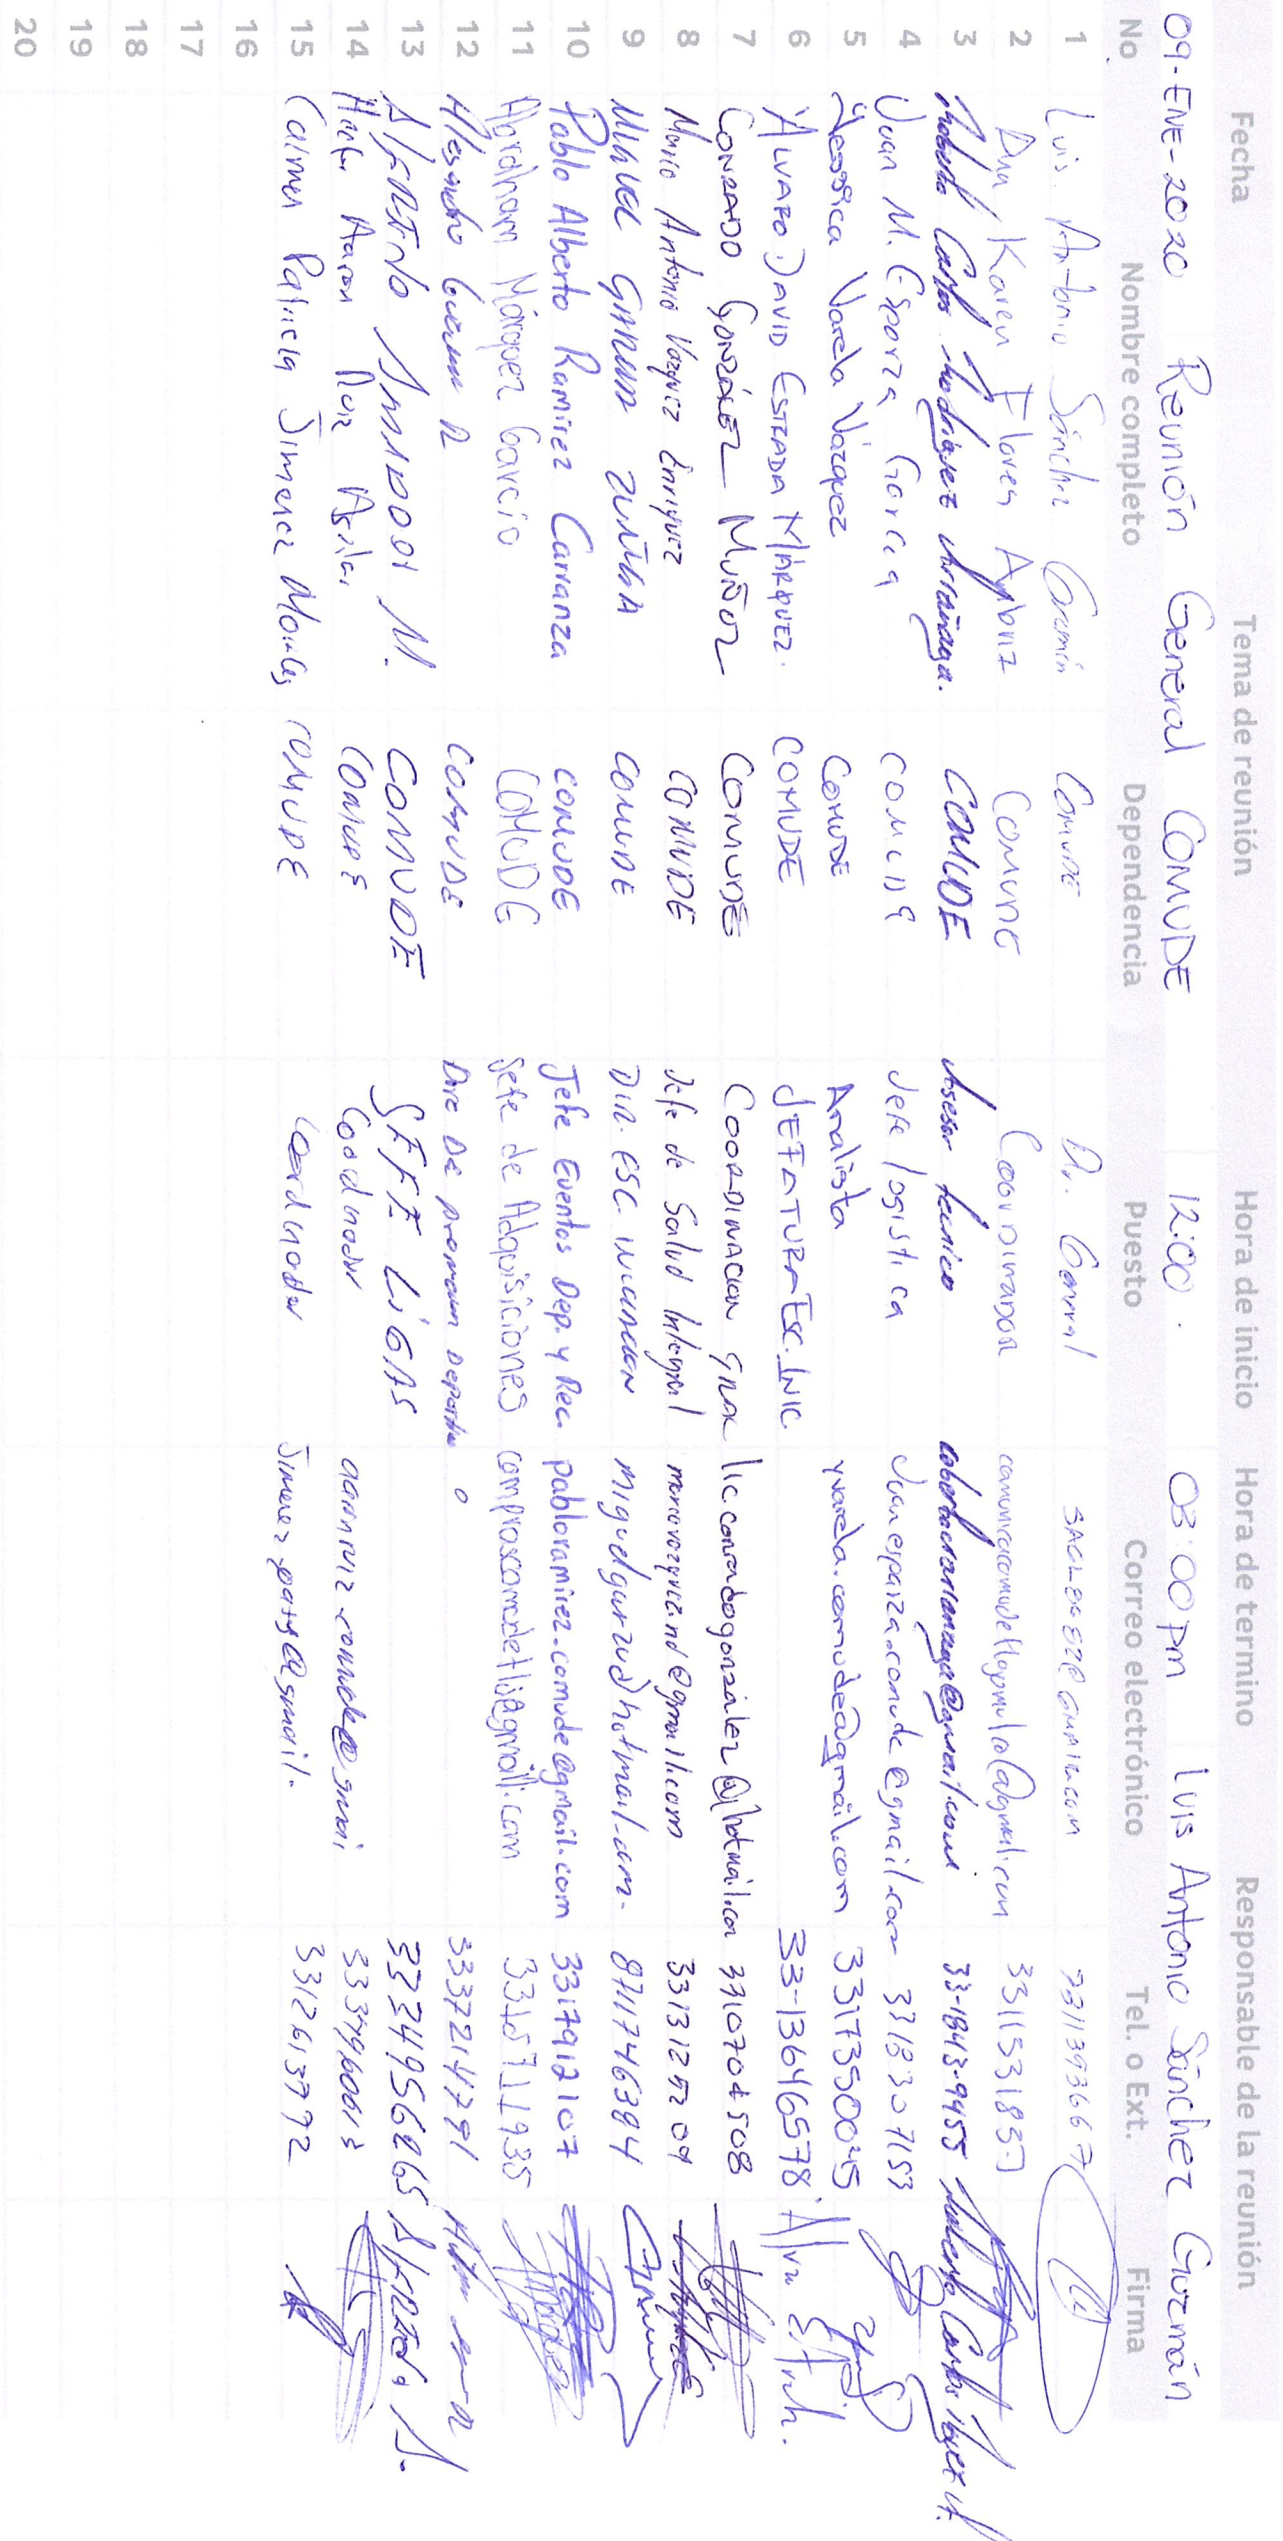 Fecha Tema de reunión Hora de inicio Hora de termino Responsable de la reunión
09-ENE-2020 Reunión General COMUDE 12:00. 03:00pm Luis Antonio Sánchez Guzmán
No. Nombre completo Dependencia Puesto Correo electrónico Tel. o Ext. Firma
1 Luis Antonio Sánchez Guzmán COMUDE D. General
2 Karen Flores COMUDE Coordinadora 3311531837
3 Roberto Carlos Rodríguez Arrañaga. COMUDE Asesor tecnico robertocrarranaga@gmail.com 33-1843-9455
4 Juan M. Esparza Garcia COMUDE Jefe logistica Juanesparza.comude@gmail.com 3318307153
5 Yessica Varela Vázquez COMUDE Analista yvarela.comude@gmail.com 3317350045
6 ALVARO DAVID ESTRADA MÁRQUEZ. COMUDE JEFATURA ESC. INIC 33-13646578
7 CONRADO GONZÁLEZ MUÑOZ COMUDE COORDINACION GRAL lic.conradogonzalez@hotmail.com 3310704508
8 Marco Antonio Vazquez Enriquez COMUDE Jefe de Salud Integral marcovazquez.nd@gmail.com 3313125204
9 MIGUEL GARCIA ZUÑIGA COMUDE DIR. ESC. INICIACION 8711746384
10 Pablo Alberto Ramírez Carranza COMUDE Jefe Eventos Dep. y Rec. pabloramirez.comude@gmail.com 3317912107
11 Abraham Márquez García COMUDE Jefe de Adquisiciones comprascomudetlj@gmail.com
12 Alejandro Guerra R COMUDE Dire De Deportiva 3337214791
13 COMUDE JEFE LIGAS
14 Aaron Ruiz Aguilar COMUDE Coordinador
15 Carmen Patricia Jimenez Morales COMUDE Coordinador Jimenez.paty@gmail. 3312613792
16
17
18
19
20